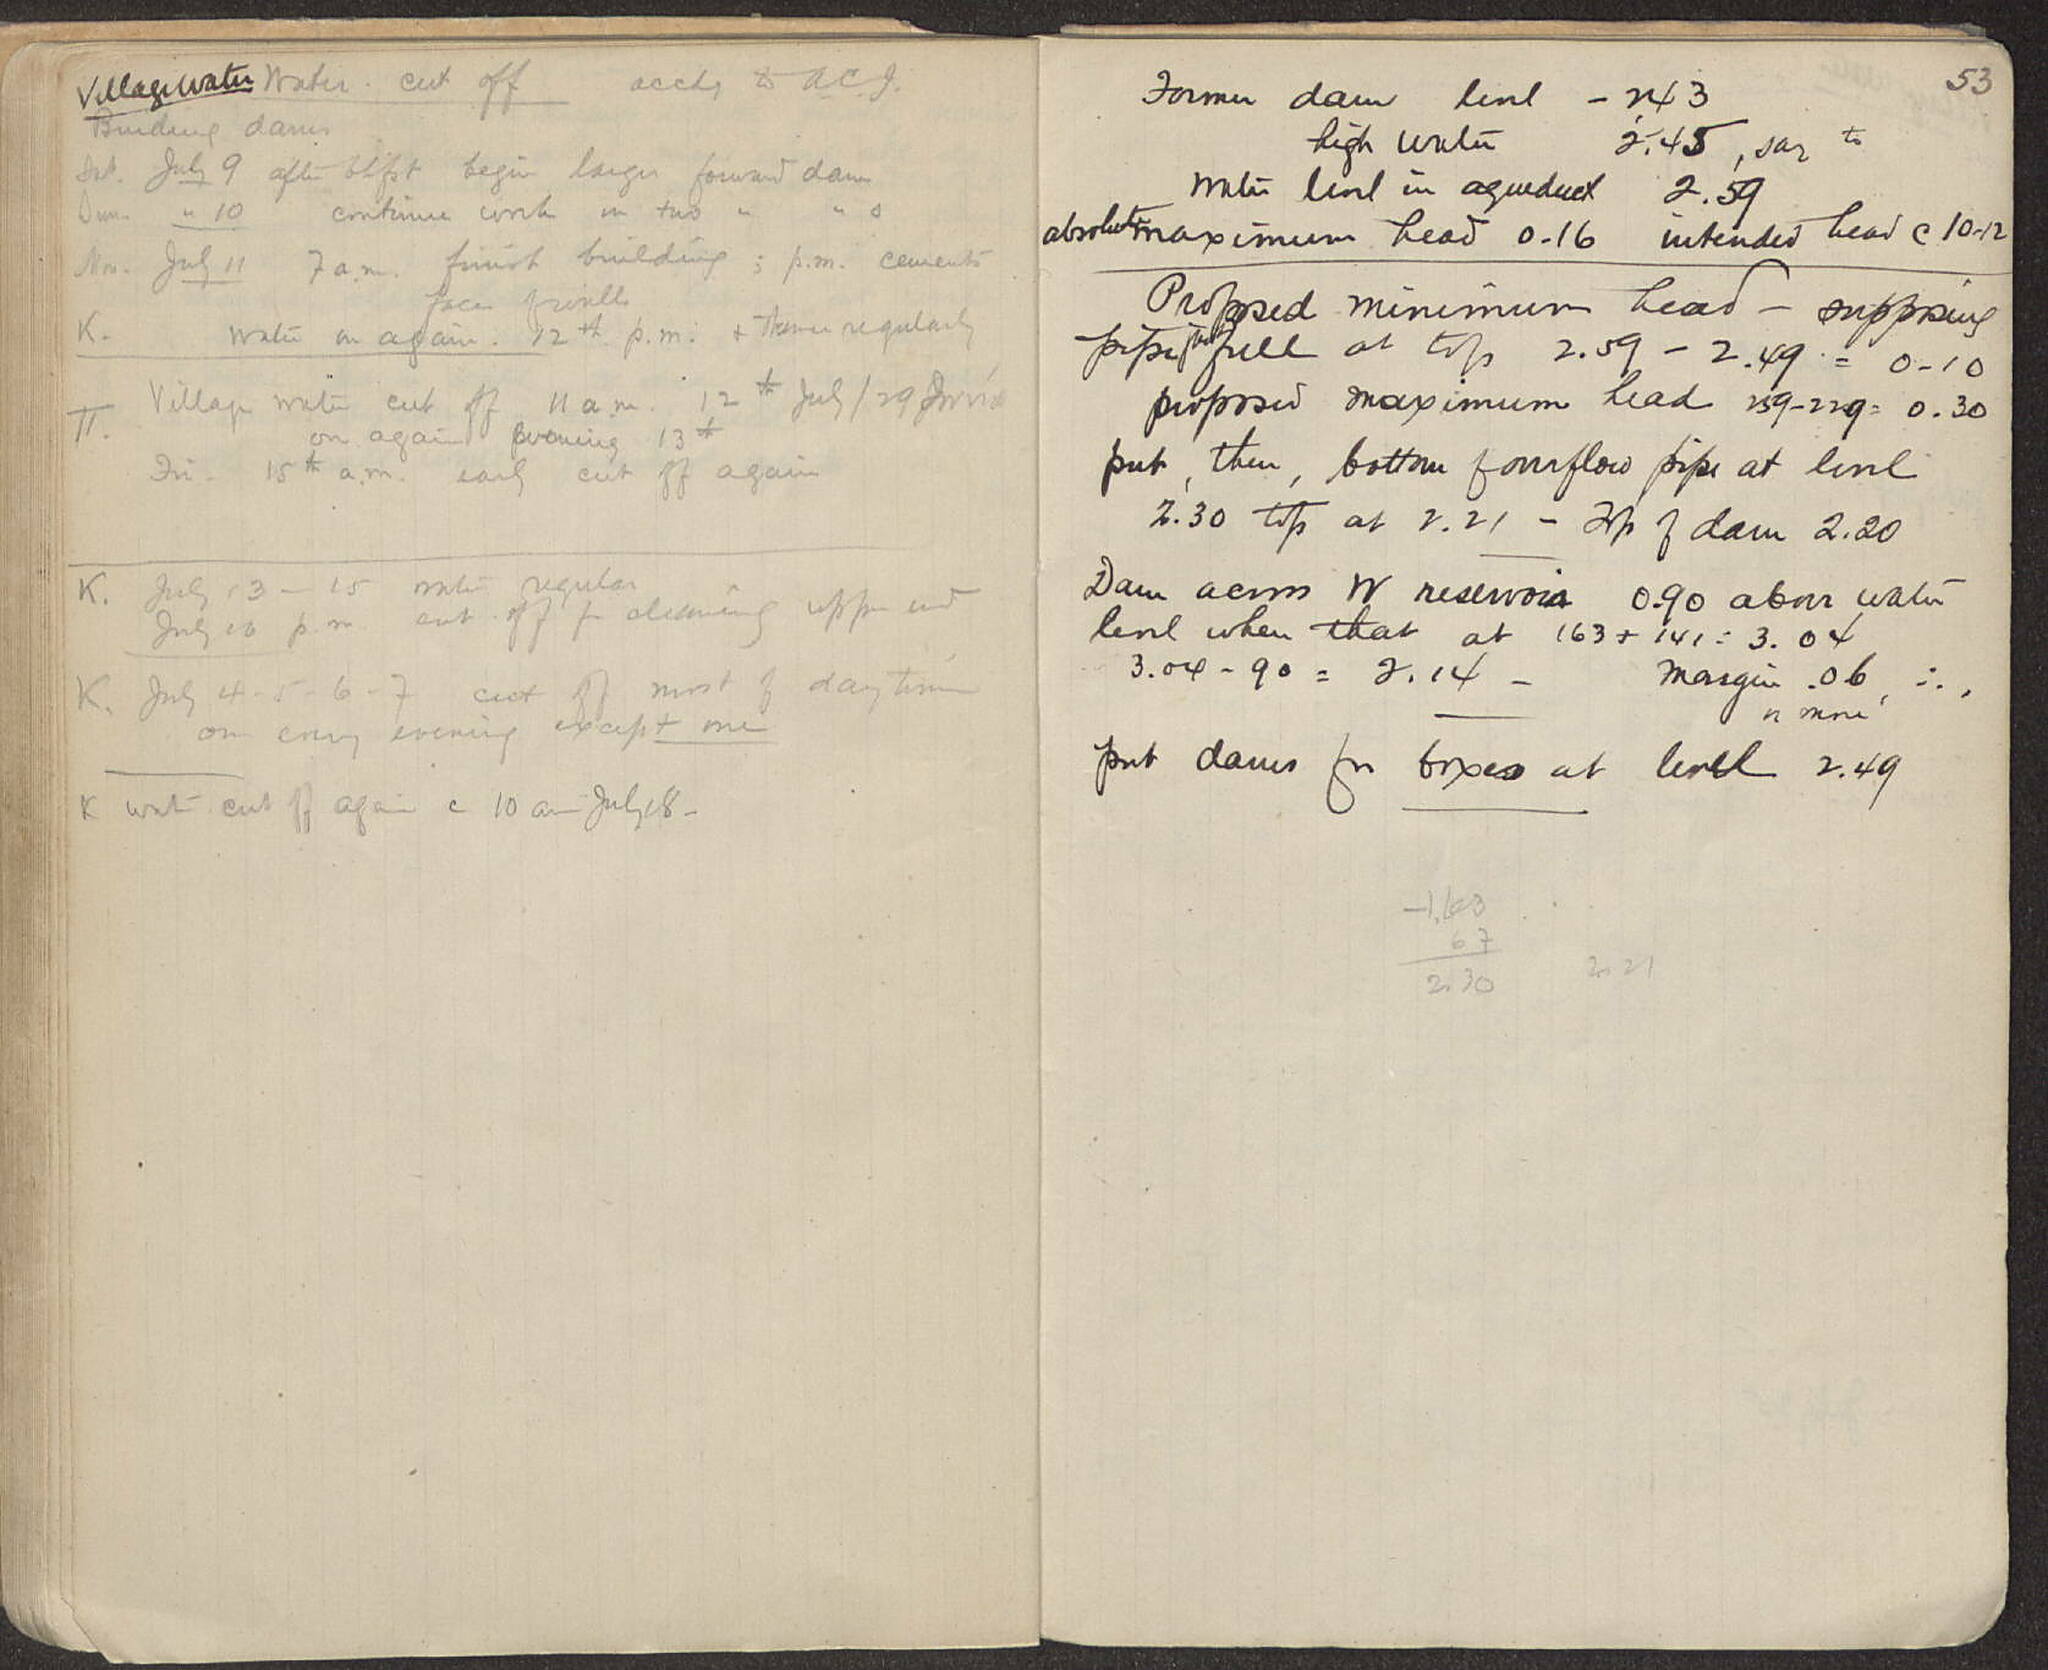 Village Water Water cut off accdg to A.C.J.
Building dams
Sat. July 9 after bkfst begin larger forward dam
Sun. " 10 continue work on two " " s
Mon. July 11 7 a.m. finish building ; p.m. cements
face of walls
K. Water on again. 12th p.m. + thence regularly
π. Village water cut off 11 a.m. 12th July / 29
on again evening 13th
Fri. 15th a.m. early cut off again
K. July 13 - 15 water regular
July 16 p.m. cut off for cleaning upper end
K. July 4-5-6-7 cut off most of daytime
on every evening except one
K water cut off again c 10 am July 18 -
53
Former dam level - 243
high water 2.45, say to
Water level in aqueduct 2.59
absolute maximum head 0.16 intended head c 10-12
Proposed minimum head - supposing
pipe just full at top 2.59 - 2.49 = 0.10
proposed maximum head 259-229 = 0.30
put, then, bottom of overflow pipe at level
2.30 top at 2.21 - Top of dam 2.20
Dam across W reservoir 0.90 above water
level when that at 163 + 141 = 3.04
3.04 - 90 = 2.14 - margin .06, ∴,
or more
put dams for boxes at level 2.49
-1.63
67
2.30 2.21